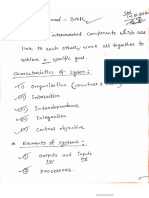 interrelated components which are
link to each others, work all together to
achieve a specific goal.
Characteristics of system:-
Organization (structure &
Interaction
Interdependence
Integration
Control objective
Elements of systems:-
Outputs and inputs
Processors.